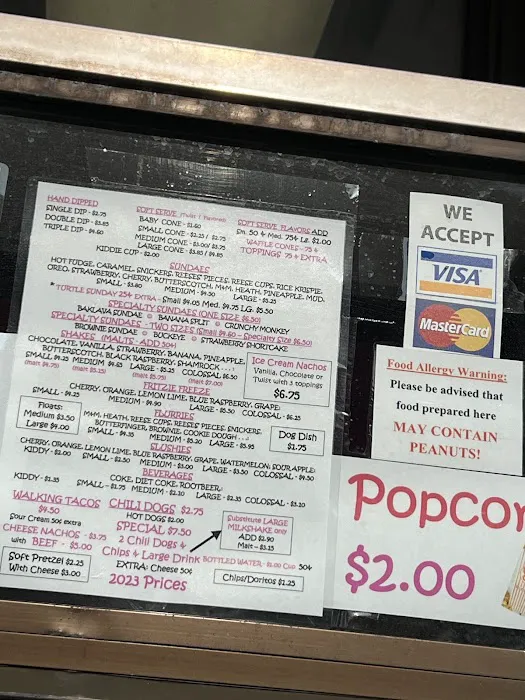 HAND DIPPED
SINGLE DIP - $2.75
DOUBLE DIP - $3.85
TRIPLE DIP - $4.60
SOFT SERVE
BABY CONE - $1.60
SMALL CONE - $2.25 / $2.75
MEDIUM CONE - $3.00 / $3.75
LARGE CONE - $3.85 / $4.85
KIDDIE CUP - $2.00
SOFT SERVE FLAVORS ADD
Sm. 50¢ Med. 75¢ Lg. $1.00
WAFFLE CONES - 75¢
TOPPINGS 75¢ EXTRA
SUNDAES
HOT FUDGE, CARAMEL, SNICKERS, REESES PIECES, REESE CUPS, RICE KRISPIE,
OREO, STRAWBERRY, CHERRY, BUTTERSCOTCH, M&M, HEATH, PINEAPPLE, MUD,
SMALL - $3.60 MEDIUM - $4.50 LARGE - $5.25
* TURTLE SUNDAY 25¢ EXTRA - Small $4.05 Med. $4.75 LG. $5.50
SPECIALTY SUNDAES (ONE SIZE $6.50)
BAKLAVA SUNDAE BANANA SPLIT CRUNCHY MONKEY
SPECIALTY SUNDAES - TWO SIZES (Small $4.60 - Specialty Size $6.50)
BROWNIE SUNDAE BUCKEYE STRAWBERRY SHORTCAKE
SHAKES (MALTS - ADD 50¢)
CHOCOLATE, VANILLA, STRAWBERRY, BANANA, PINEAPPLE,
BUTTERSCOTCH, BLACK RASPBERRY, SHAMROCK . . .
SMALL $4.25 MEDIUM $4.65 LARGE - $5.25 COLOSSAL $6.50
(malt $4.75) (malt $5.15) (malt $5.75) (malt $7.00)
Ice Cream Nachos
Vanilla, Chocolate or
Twist with 3 toppings
$6.75
FRITZIE FREEZE
CHERRY, ORANGE, LEMON LIME, BLUE RASPBERRY, GRAPE
SMALL - $4.25 MEDIUM - $4.90 LARGE - $5.50 COLOSSAL - $6.25
Floats:
Medium $3.50
Large $4.00
FLURRIES
M&M, HEATH, REESE CUPS, REESES PIECES, SNICKERS,
BUTTERFINGER, BROWNIE, COOKIE DOUGH . . .
SMALL - $4.35 MEDIUM - $5.20 LARGE - $5.95
Dog Dish
$1.75
SLUSHIES
CHERRY, ORANGE, LEMON LIME, BLUE RASPBERRY, GRAPE, WATERMELON, SOUR APPLE
KIDDY - $2.00 SMALL - $2.50 MEDIUM - $3.00 LARGE - $3.50 COLOSSAL - $4.50
BEVERAGES
COKE, DIET COKE, ROOTBEER
KIDDY - $1.35 SMALL - $1.75 MEDIUM - $2.10 LARGE - $2.35 COLOSSAL - $3.10
WALKING TACOS
$4.50
Sour Cream 50¢ extra
CHEESE NACHOS - $3.75
with BEEF - $5.00
Soft Pretzel $2.25
With Cheese $3.00
CHILI DOGS $2.75
HOT DOGS $2.00
SPECIAL $7.50
2 Chili Dogs &
Chips & Large Drink
EXTRA: Cheese 50¢
2023 Prices
Substitute LARGE
MILKSHAKE only
ADD $2.90
Malt - $3.15
BOTTLED WATER - $1.00 Cup 50¢
Chips/Doritos $1.25
WE
ACCEPT
VISA
MasterCard
Food Allergy Warning:
Please be advised that
food prepared here
MAY CONTAIN
PEANUTS!
Popcor
$2.00